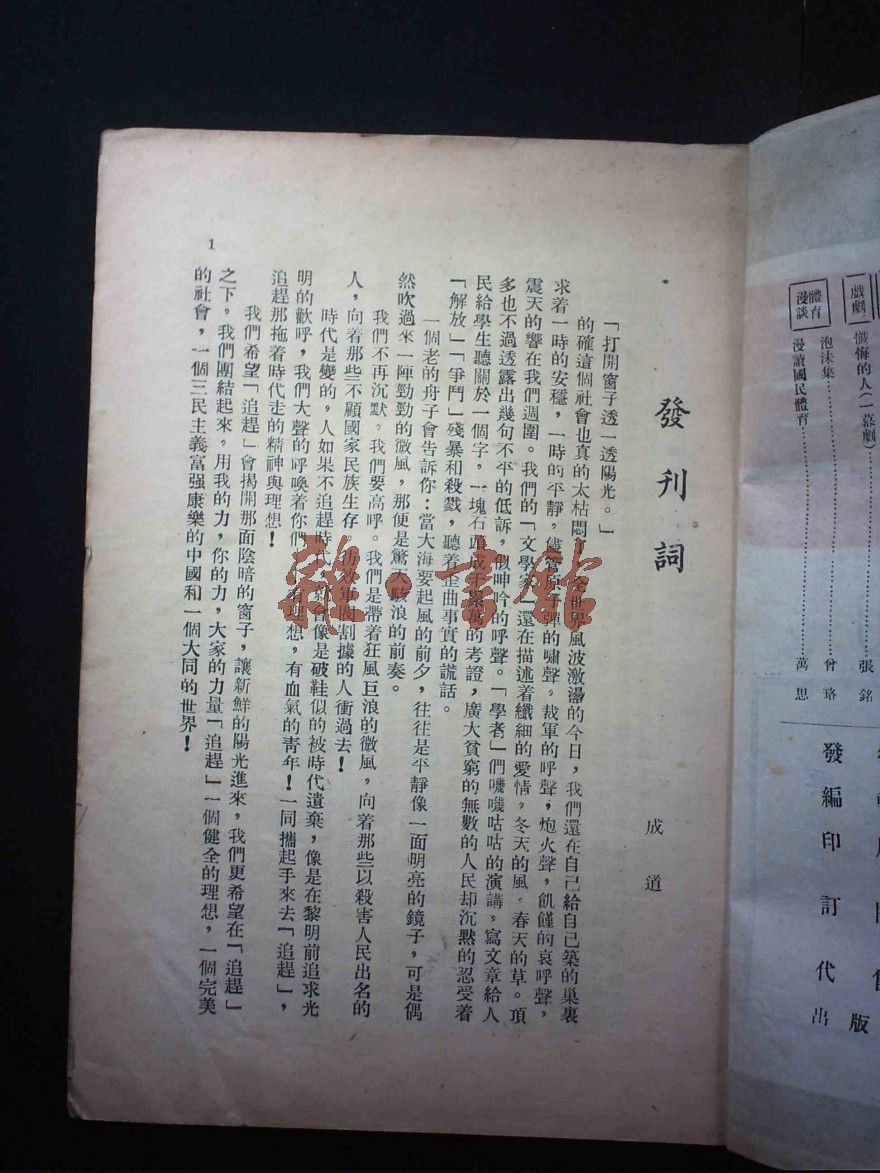 發刊詞
成道
「打開窗子透一透陽光。」
的確這個社會也真的太枯悶了，全世界風波激盪的今日，我們還在自己給自己築的巢裏
求着一時的安穩，一時的平靜，儘管原子彈的嘯聲，裁軍的呼聲，炮火聲，飢饉的哀呼聲，
震天的響在我們週圍。我們的「文學家」還在描述着纖細的愛情，冬天的風，春天的草。頂
多也不過透露出幾句不平的低訴，似呻吟的呼聲。「學者」們嘰嘰咕咕的演講，寫文章給人
民給學生聽關於一個字，一塊石頭成千累萬的考證，廣大貧窮的無數的人民却沉默的忍受着
「解放」「爭鬥」殘暴和殺戮，聽着歪曲事實的謊話。
一個老的舟子會告訴你：當大海要起風的前夕，往往是平靜像一面明亮的鏡子，可是偶
然吹過來一陣勁勁的微風，那便是驚天駭浪的前奏。
我們不再沉默，我們要高呼。我們是帶着狂風巨浪的微風，向着那些以殺害人民出名的
人，向着那些不顧國家民族生存，彷效軍閥割據的人衝過去！
時代是變的，人如果不追趕時代，就會像是破鞋似的被時代遺棄，像是在黎明前追求光
明的歡呼，我們大聲的呼喚着你們，有理想，有血氣的青年！一同攜起手來去「追趕」，
追趕那拖着時代走的精神與理想！
我們希望「追趕」會揭開那面陰暗的窗子，讓新鮮的陽光進來，我們更希望在「追趕」
之下，我們團結起來，用我的力，你的力，大家的力量「追趕」一個健全的理想，一個完美
的社會，一個三民主義富强康樂的中國和一個大同的世界！
1
戲劇
懺悔的人（一幕劇）
張銘
泡沫集
曾珞
體育漫談
漫談國民體育
萬思
版
發編印訂代出